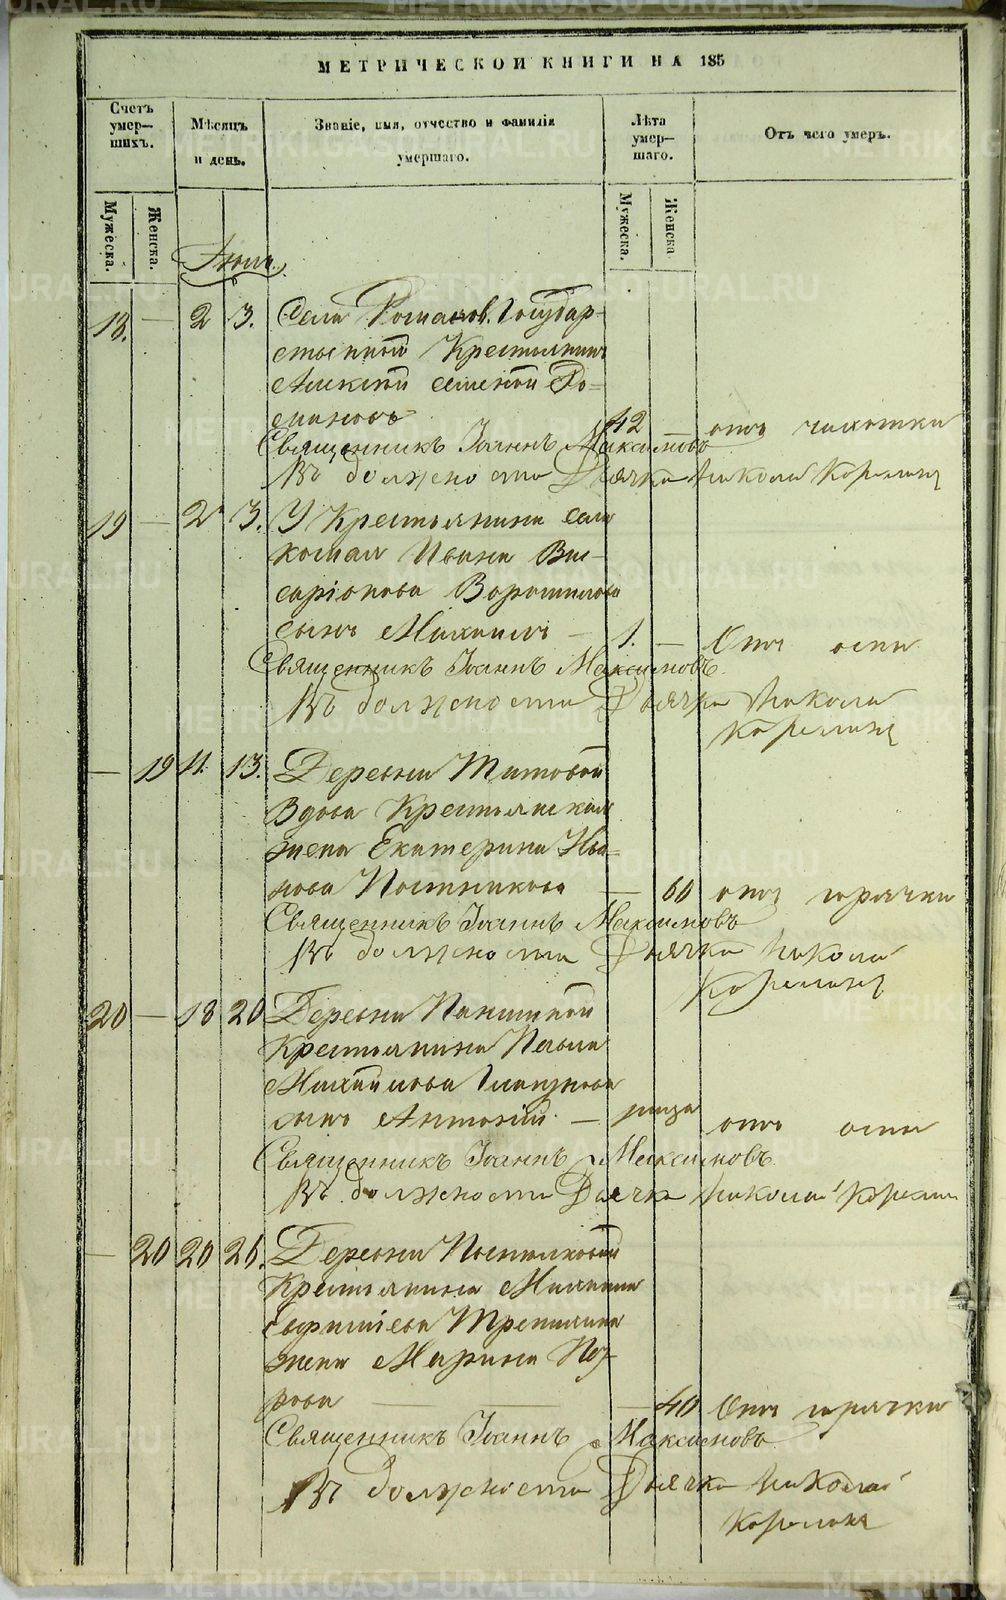 МЕТРИЧЕСКОЙ КНИГИ НА 185
Счетъ умер-
шихъ.
Мѣсяцъ
и день.
Званіе, имя, отчество и фамилія
умершаго.
Лѣта
умер-
шаго.
Отъ чего умеръ.
Мужеска.
Женска.
Мужеска.
Женска
18. — 2 3. Села Романов. Государ-
ственной Крестьянинъ
Алексѣй Ро-
мановъ 42 — отъ чихотки
Священникъ Іоаннъ Максимовъ
Въ должности Дьячка Николай Корелинъ
19 — 2 3. У Крестьянина села
Ивана Вис-
саріонова Ворошилова
сынъ Михаилъ — 1. — Отъ оспы
Священникъ Іоаннъ Максимовъ
Въ должности Дьячка Николай
Корелинъ
— 19 11. 13. Деревни Титовой
Вдова Крестьянская
жена Екатерина Ива-
нова Постникова — 60 отъ горячки
Священникъ Іоаннъ Максимовъ
Въ должности Дьячка Николай
Корелинъ
20 — 18 20 Деревни Паншиной
Крестьянина Павла
Михайлова Глазунова
сынъ Антоній — отъ оспы
Священникъ Іоаннъ Максимовъ
Въ должности Дьячка Николай Корелин
— 20 20 Деревни
Крестьянина
жена Марина Пет-
рова — 40 Отъ горячки
Священникъ Іоаннъ Максимовъ
Въ должности Дьячка Николай
Корелинъ
METRIKI.GASO-URAL.RU